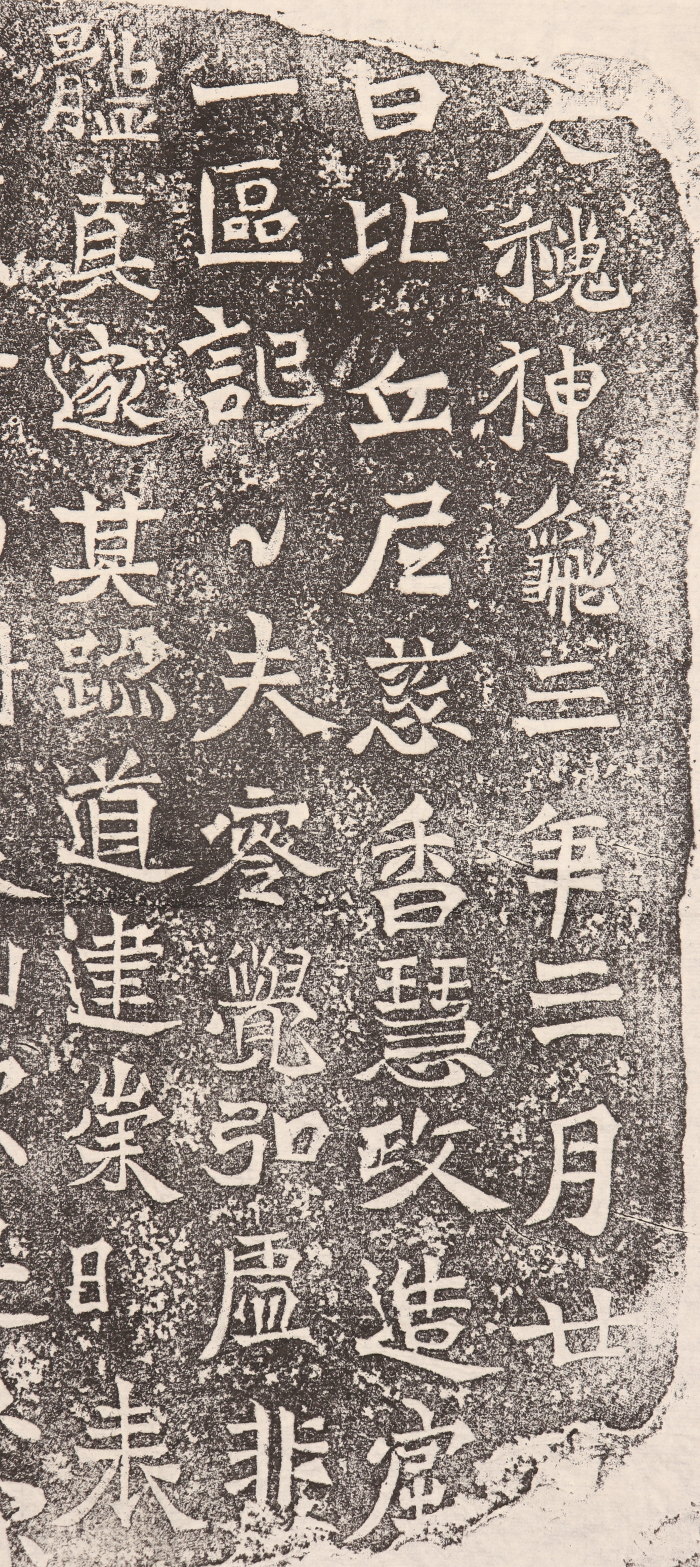 大魏神龜三年三月廿
日比丘尼慈香慧政造窟
一區記之夫零覺弘虛非
體真邃其蹤道建崇日表